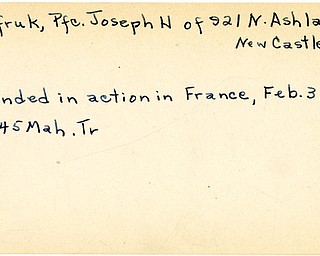 fruk, Pfc. Joseph H of 921 N. Ashla
New Castle
nded in action in France, Feb. 3
45 Mah. Tr